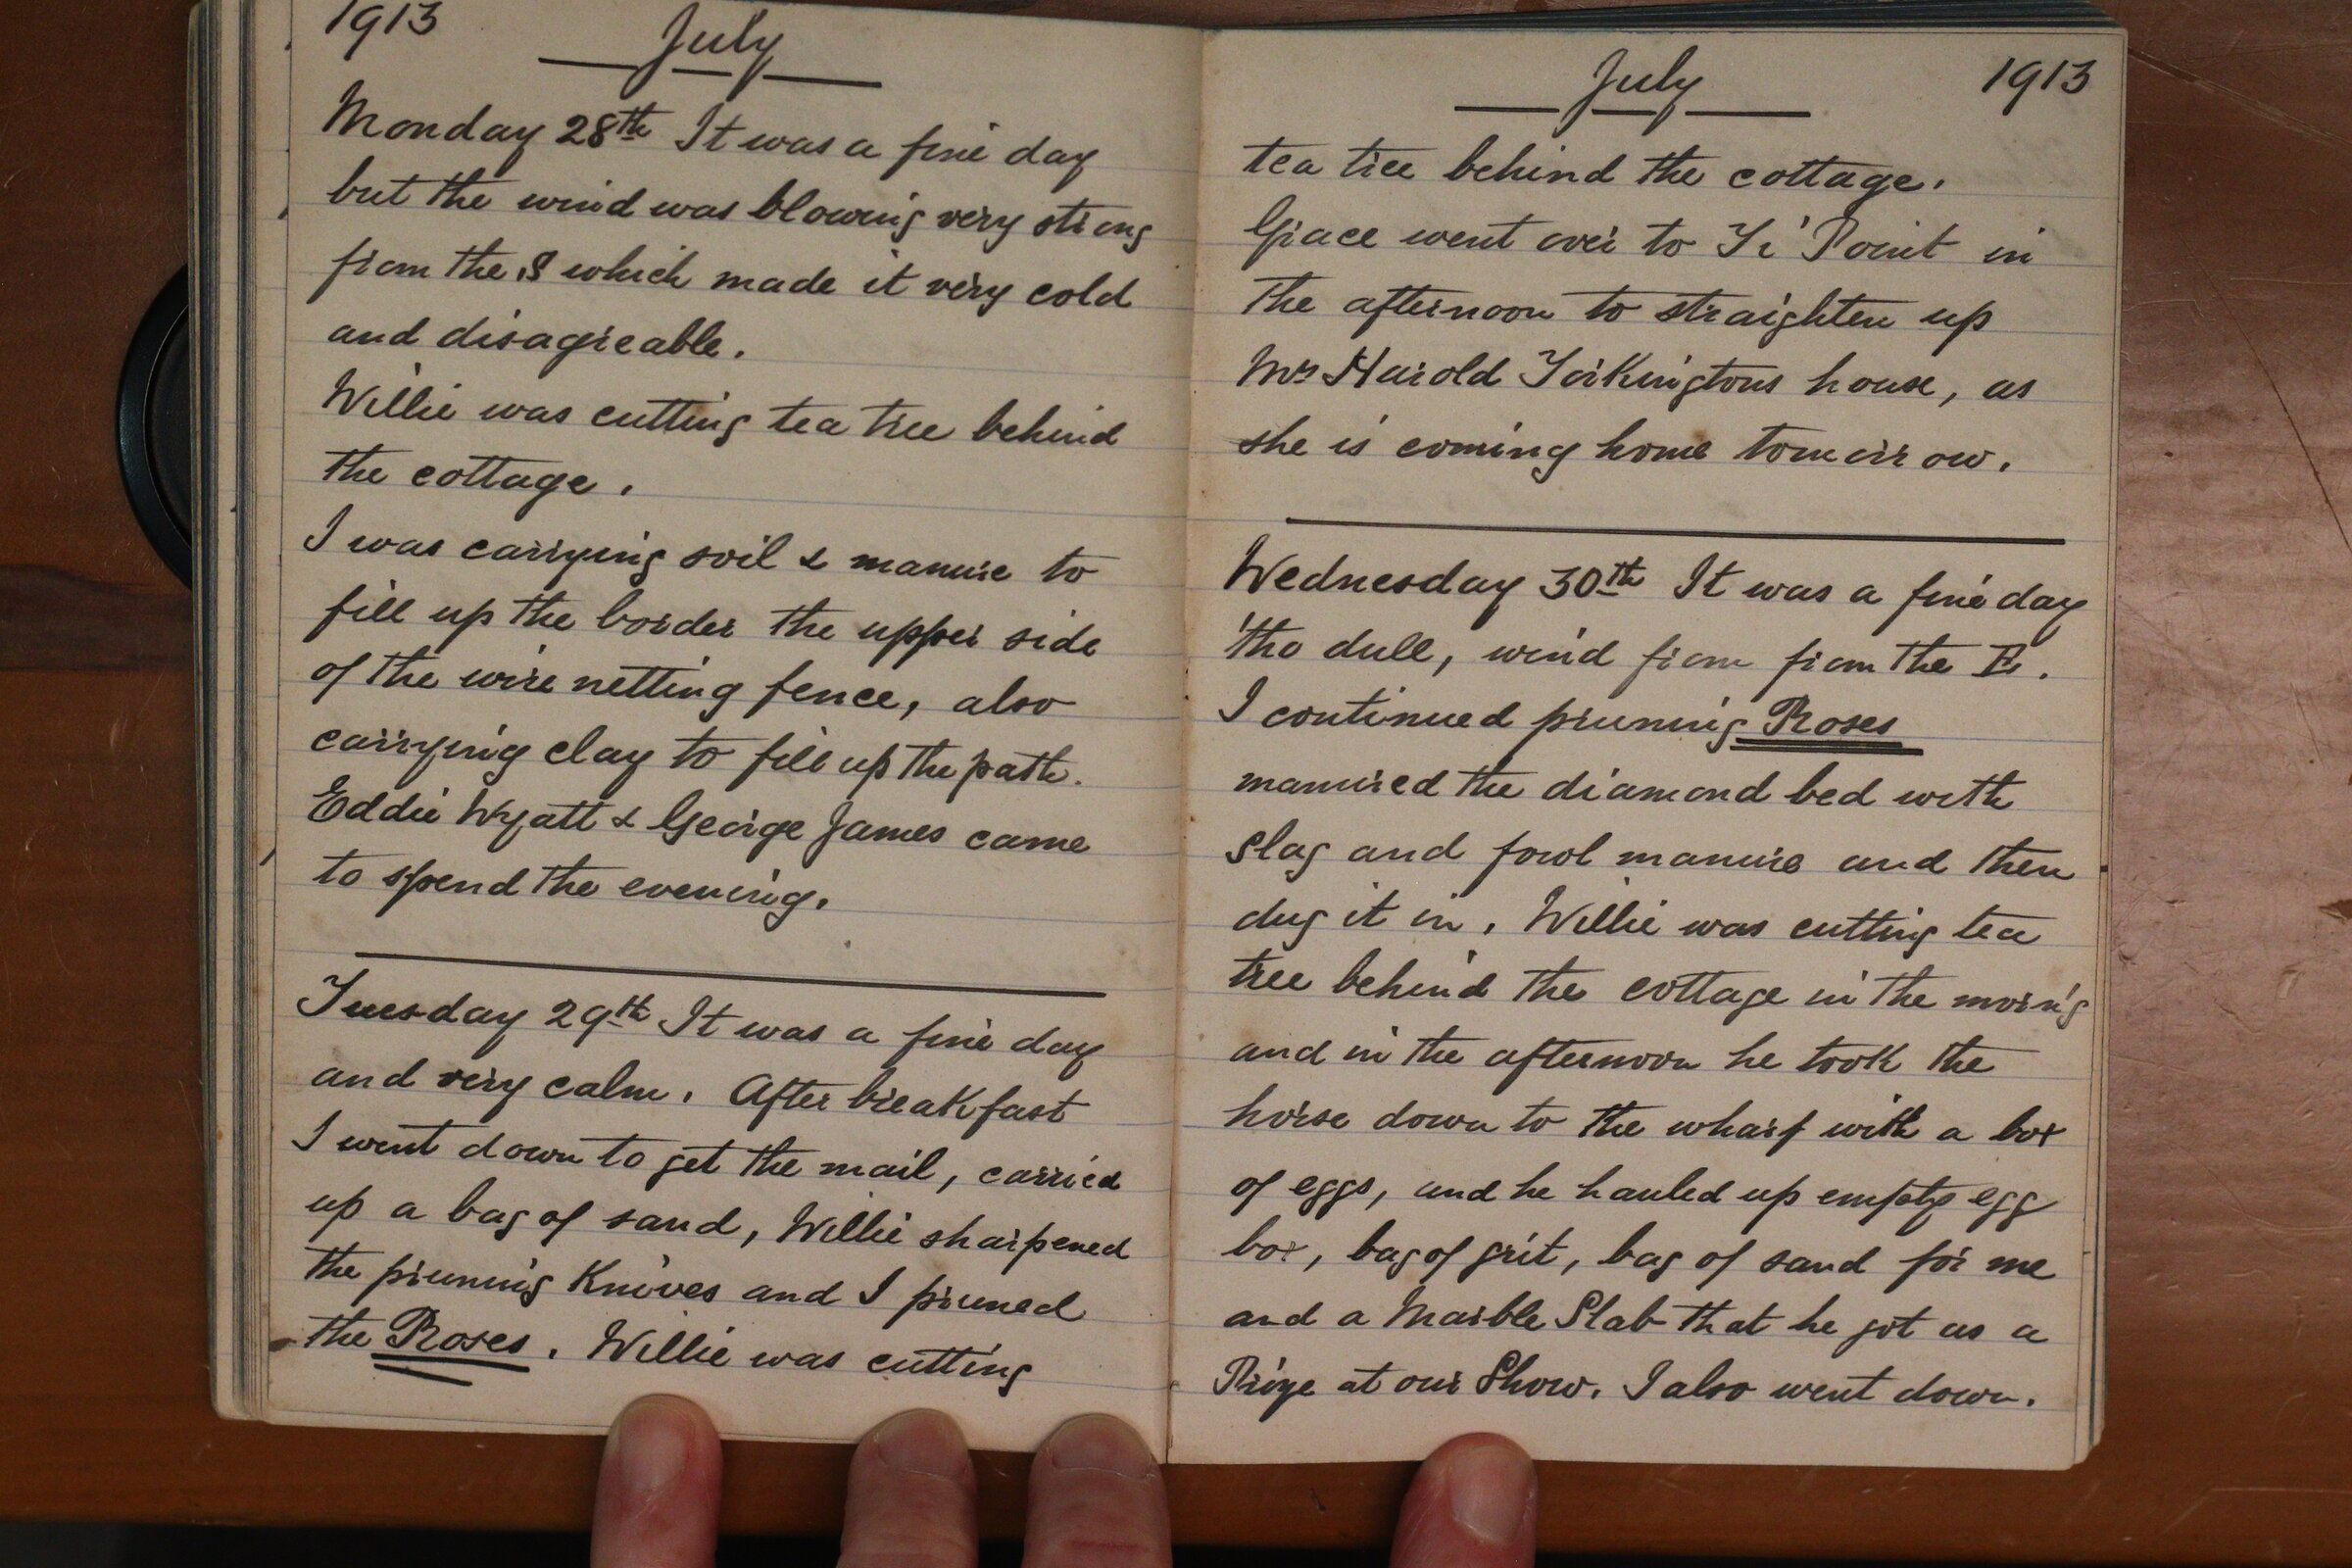 1913
July
Monday 28th It was a fine day
but the wind was blowing very strong
from the S which made it very cold
and disagreeable.
Willie was cutting tea tree behind
the cottage.
I was carrying soil & manure to
fill up the border the upper side
of the wire netting fence, also
carrying clay to fill up the path.
Eddie Wyatt & George James came
to spend the evening.
Tuesday 29th It was a fine day
and very calm. After breakfast
I went down to get the mail, carried
up a bag of sand, Willie sharpened
the pruning Knives and I pruned
the Roses. Willie was cutting
July 1913
tea tree behind the cottage.
Grace went over to Ti' Point in
the afternoon to straighten up
Mrs Harold Torkingtons house, as
she is coming home tomorrow.
Wednesday 30th It was a fine day
'tho dull, wind from from the E.
I continued pruning Roses
manured the diamond bed with
slag and fowl manure and then
dug it in. Willie was cutting tea
tree behind the cottage in the morn'g
and in the afternoon he took the
horse down to the wharf with a box
of eggs, and he hauled up empty egg
box, bag of grit, bag of sand for me
and a Marble Slab that he got as a
Prize at our Show. I also went down.